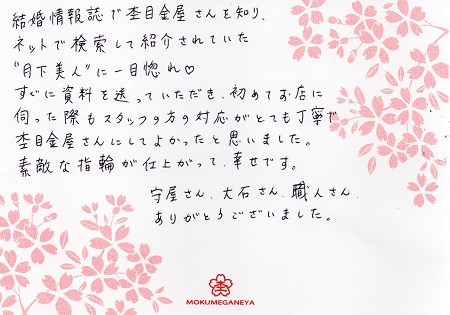 結婚情報誌で杢目金屋さんを知り、
ネットで検索して紹介されていた
"月下美人"に一目惚れ♡
すぐに資料を送っていただき、初めてお店に
伺った際もスタッフの方の対応がとても丁寧で
杢目金屋さんにしてよかったと思いました。
素敵な指輪が仕上がって、幸せです。
守屋さん、大石さん、職人さん、
ありがとうございました。
杢
MOKUMEGANEYA